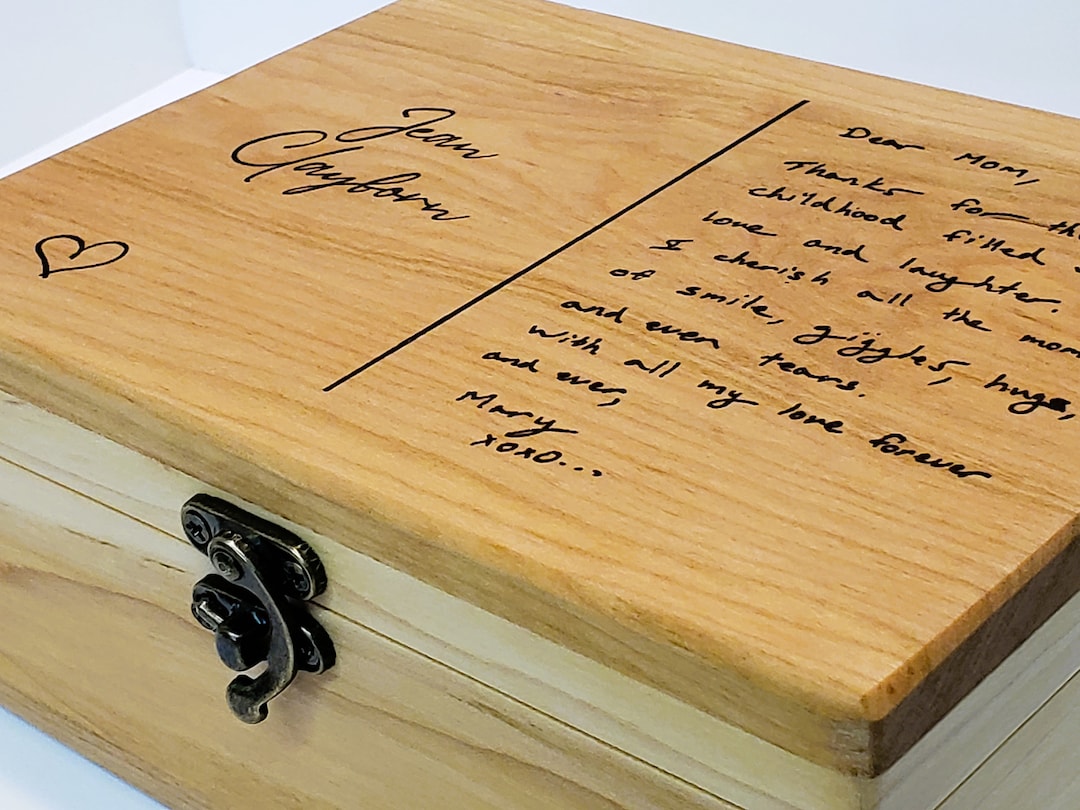 Jean
Clayborn
Dear Mom,
Thanks for
childhood filled
love and laughter.
I cherish all the
of smile, giggles, hugs,
and even tears.
with all my love forever
and ever,
Mary
xoxo...